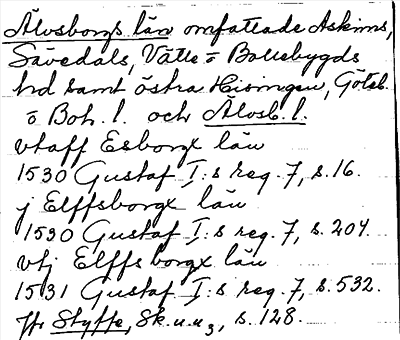 Älvsborgs län omfattade Askims,
Sävedals, Vätle o Bollebygds
hrd samt östra Hisingen, Göteb.
o Boh. l. och Älvsb. l.
vtaff Esborgx län
1530 Gustaf I:s reg. 7, s. 16.
j Elffsborgx län
1530 Gustaf I:s reg. 7, s. 204.
vtj Elffsborgx län
1531 Gustaf I:s reg. 7, s. 532.
Jfr Styffe, Sk.u.u3, s. 128.